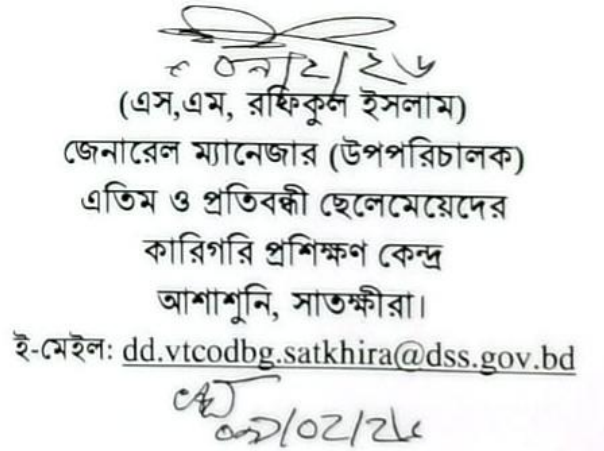 ০৯/২/২৬
(এস,এম, রফিকুল ইসলাম)
জেনারেল ম্যানেজার (উপপরিচালক)
এতিম ও প্রতিবন্ধী ছেলেমেয়েদের
কারিগরি প্রশিক্ষণ কেন্দ্র
আশাশুনি, সাতক্ষীরা।
ই-মেইল: dd.vtcodbg.satkhira@dss.gov.bd